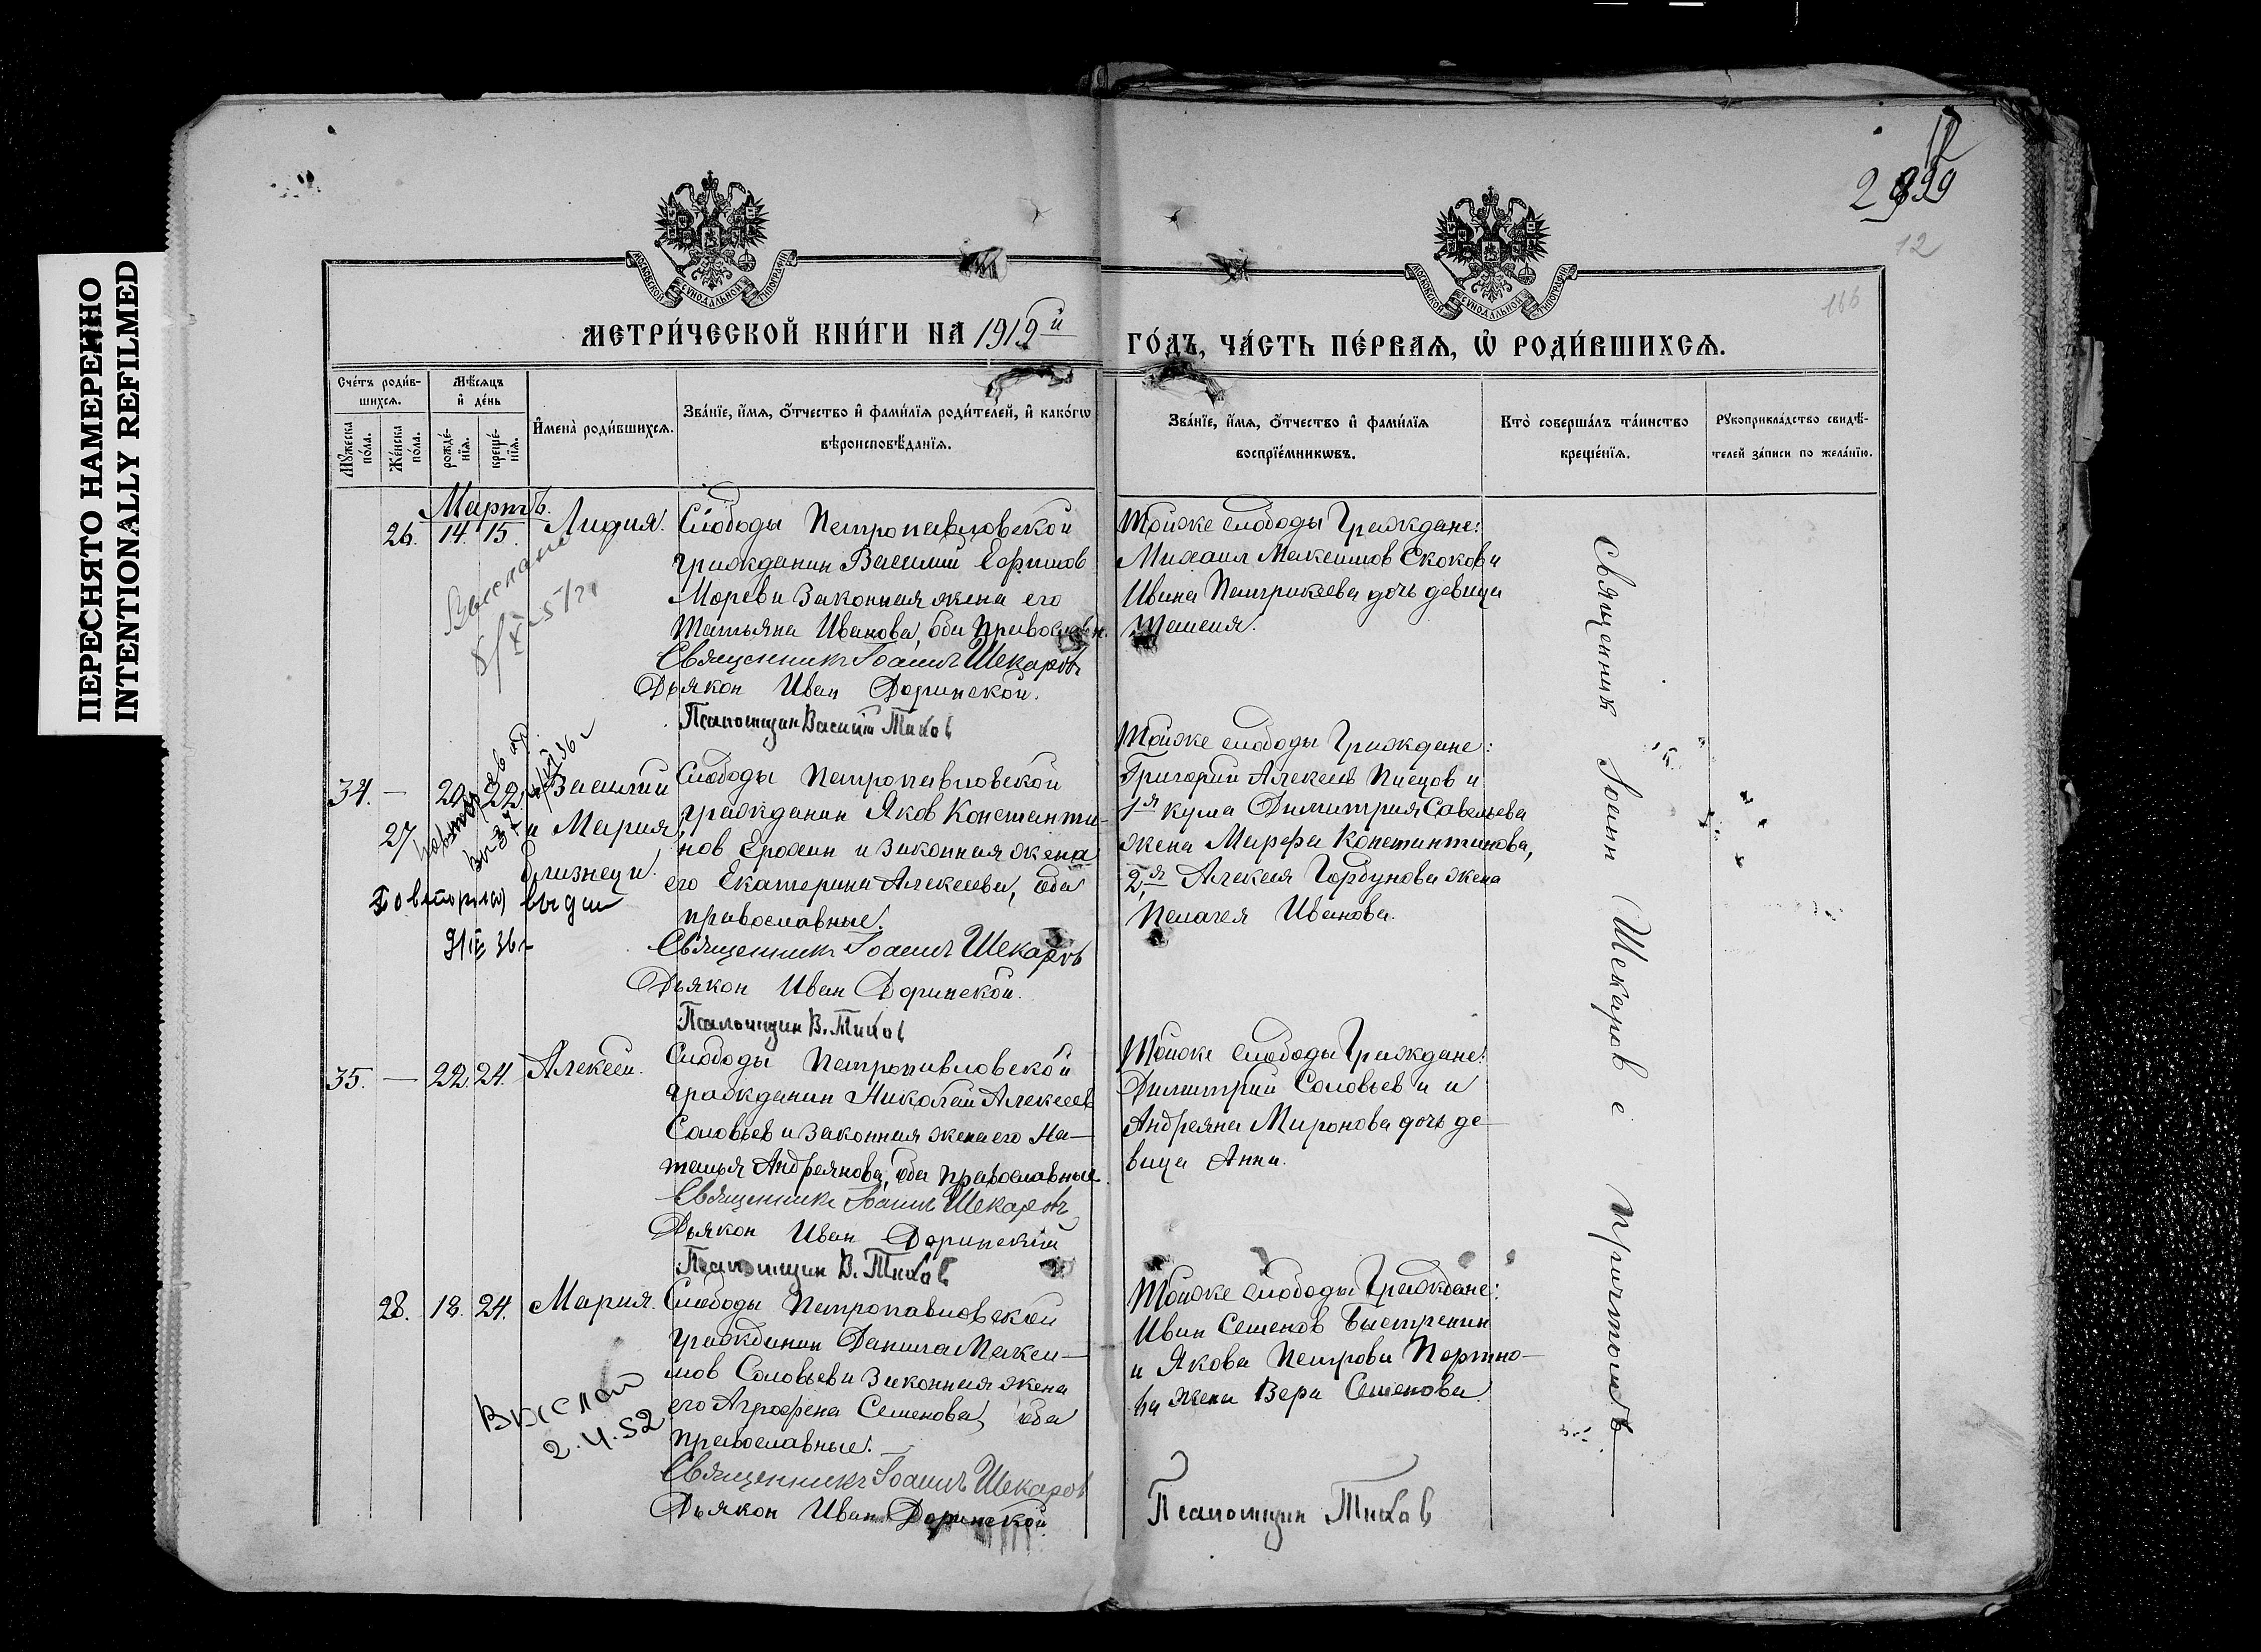 ПЕРЕСНЯТО НАМЕРЕННО
INTENTIONALLY REFILMED
12
МОСКОВСКОЙ СУНОДАЛЬНОЙ ТИПОГРАФІИ
МОСКОВСКОЙ СУНОДАЛЬНОЙ ТИПОГРАФІИ
166
МЕТРИ́ЧЕСКОЙ КНИ́ГИ НА 1919й
ГО́ДЪ, ЧА́СТЬ ПЕ́РВАѦ, Ѡ҆ РОДИ́ВШИХСѦ.
Сче́тъ роди́в-
шихсѧ.
Мꙋ́жеска по́ла.
Же́нска по́ла.
Мѣ́сѧцъ
и҆ де́нь
рожде́-
нїѧ.
креще́-
нїѧ.
И҆мена̀ роди́вшихсѧ.
Зва́нїе, и҆́мѧ, о҆́тчество и҆ фами́лїѧ роди́телей, и҆ како́гѡ
вѣроисповѣ́данїѧ.
Зва́нїе, и҆́мѧ, о҆́тчество и҆ фами́лїѧ
воспрїе́мникѡвъ.
Кто̀ соверша́лъ та́инство
креще́нїѧ.
Рꙋкоприкла́дство свидѣ́-
телей за́писи по жела́нїю.
Мартъ.
26. 14. 15. Лидия.
Слободы Петропавловской
гражданин Василий Ефимов
Морев и законная жена его
Татьяна Иванова, оба православн.
Священникъ Іоаннъ Шекаровъ
Дьякон Иван Доринской.
Псаломщик Василий Тихов
Тойже слободы Граждане:
Михаил Максимов Скоков и
Ивана Патрикеева дочь девица
Выслано
34. — 20. 22. Василий
27 и Мария
близнецы.
Повторно выдан
Слободы Петропавловской
гражданин Яков Константи-
нов Ерохин и законная жена
его Екатерина Алексеева, оба
православные.
Священникъ Іоаннъ Шекаровъ
Дьякон Иван Доринской.
Псаломщик В. Тихов
Тойже слободы Граждане:
Григорий Алексеев Писцов и
1я кума Димитрия Савельева
жена Марфа Константинова,
2я Алексея Горбунова жена
Пелагея Иванова.
35. — 22. 24. Алексей.
Слободы Петропавловской
гражданин Николай Алексеев
Соловьев и законная жена его На-
талья Андреянова, оба православные.
Священникъ Іоаннъ Шекаровъ
Дьякон Иван Доринский
Псаломщик В. Тихов
Тойже слободы Граждане:
Димитрий Соловьев и
Андреяна Миронова дочь де-
вица Анна.
28. 18. 24. Мария.
Выслан
2.4.52
Слободы Петропавловской
гражданин Данила Макси-
мов Соловьев и законная жена
его Агрофена Семенова, оба
православные.
Священникъ Іоаннъ Шекаров
Дьякон Иван Доринской.
Тойже слободы Граждане:
Иван Семенов Быстренин
и Якова Петрова Портно-
ва жена Вера Семенова.
Псаломщик Тихов
Священник Іоанн Шекаров с причтомъ